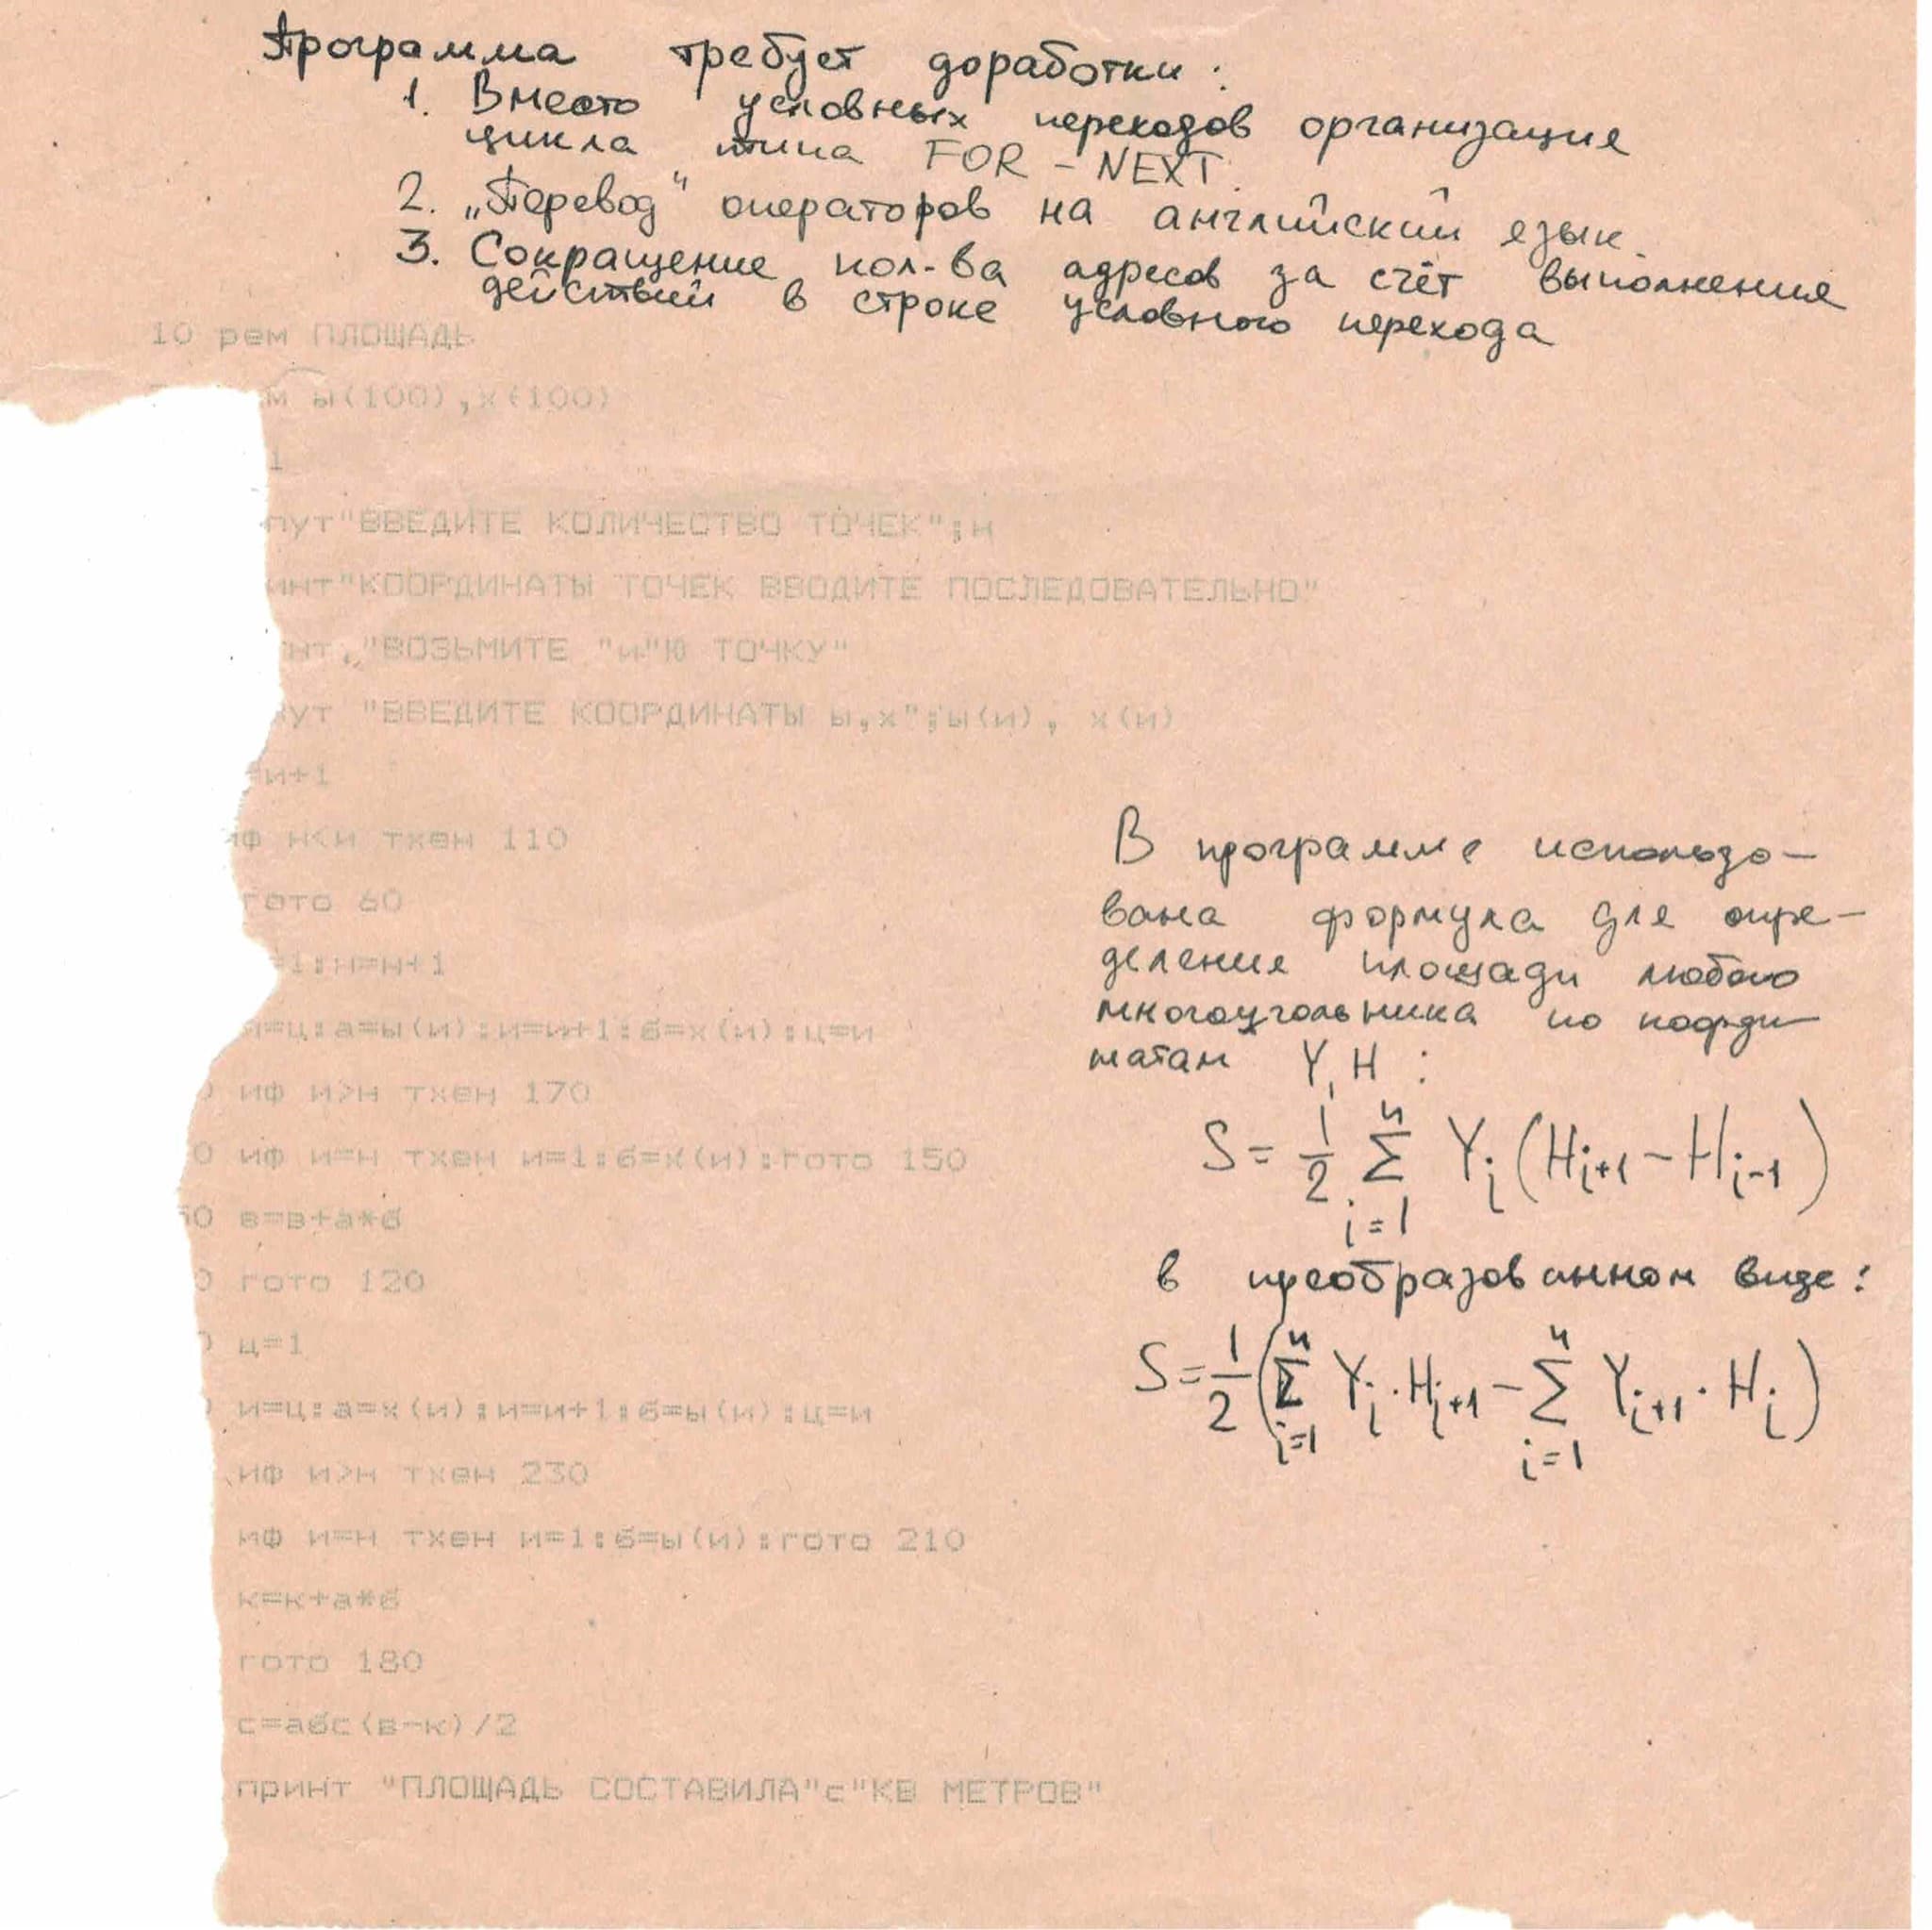 Программа требует доработки:
1. Вместо условных переходов организация
цикла типа FOR - NEXT.
2. „Перевод" операторов на английский язык.
3. Сокращение кол-ва адресов за счёт выполнения
действий в строке условного перехода
10 рем ПЛОЩАДЬ
м ы(100),х(100)
1
пут"ВВЕДИТЕ КОЛИЧЕСТВО ТОЧЕК";н
инт"КООРДИНАТЫ ТОЧЕК ВВОДИТЕ ПОСЛЕДОВАТЕЛЬНО"
нт,"ВОЗЬМИТЕ "и"Ю ТОЧКУ"
пут "ВВЕДИТЕ КООРДИНАТЫ ы,х";ы(и), х(и)
=и+1
иф н<и тхен 110
гото 60
=1:н=н+1
и=ц:а=ы(и):и=и+1:б=х(и):ц=и
0 иф и>н тхен 170
0 иф и=н тхен и=1:б=х(и):гото 150
50 в=в+а*б
0 гото 120
0 ц=1
и=ц:а=х(и):и=и+1:б=ы(и):ц=и
иф и>н тхен 230
иф и=н тхен и=1:б=ы(и):гото 210
к=к+а*б
гото 180
с=абс(в-к)/2
принт "ПЛОЩАДЬ СОСТАВИЛА"с"КВ МЕТРОВ"
В программе использо-
вана формула для опре-
деления площади любого
многоугольника по коорди-
натам Y, H :
S = 1/2 Σ i=1 n Yi (Hi+1 - Hi-1)
в преобразованном виде:
S = 1/2 (Σ i=1 n Yi · Hi+1 - Σ i=1 n Yi+1 · Hi)